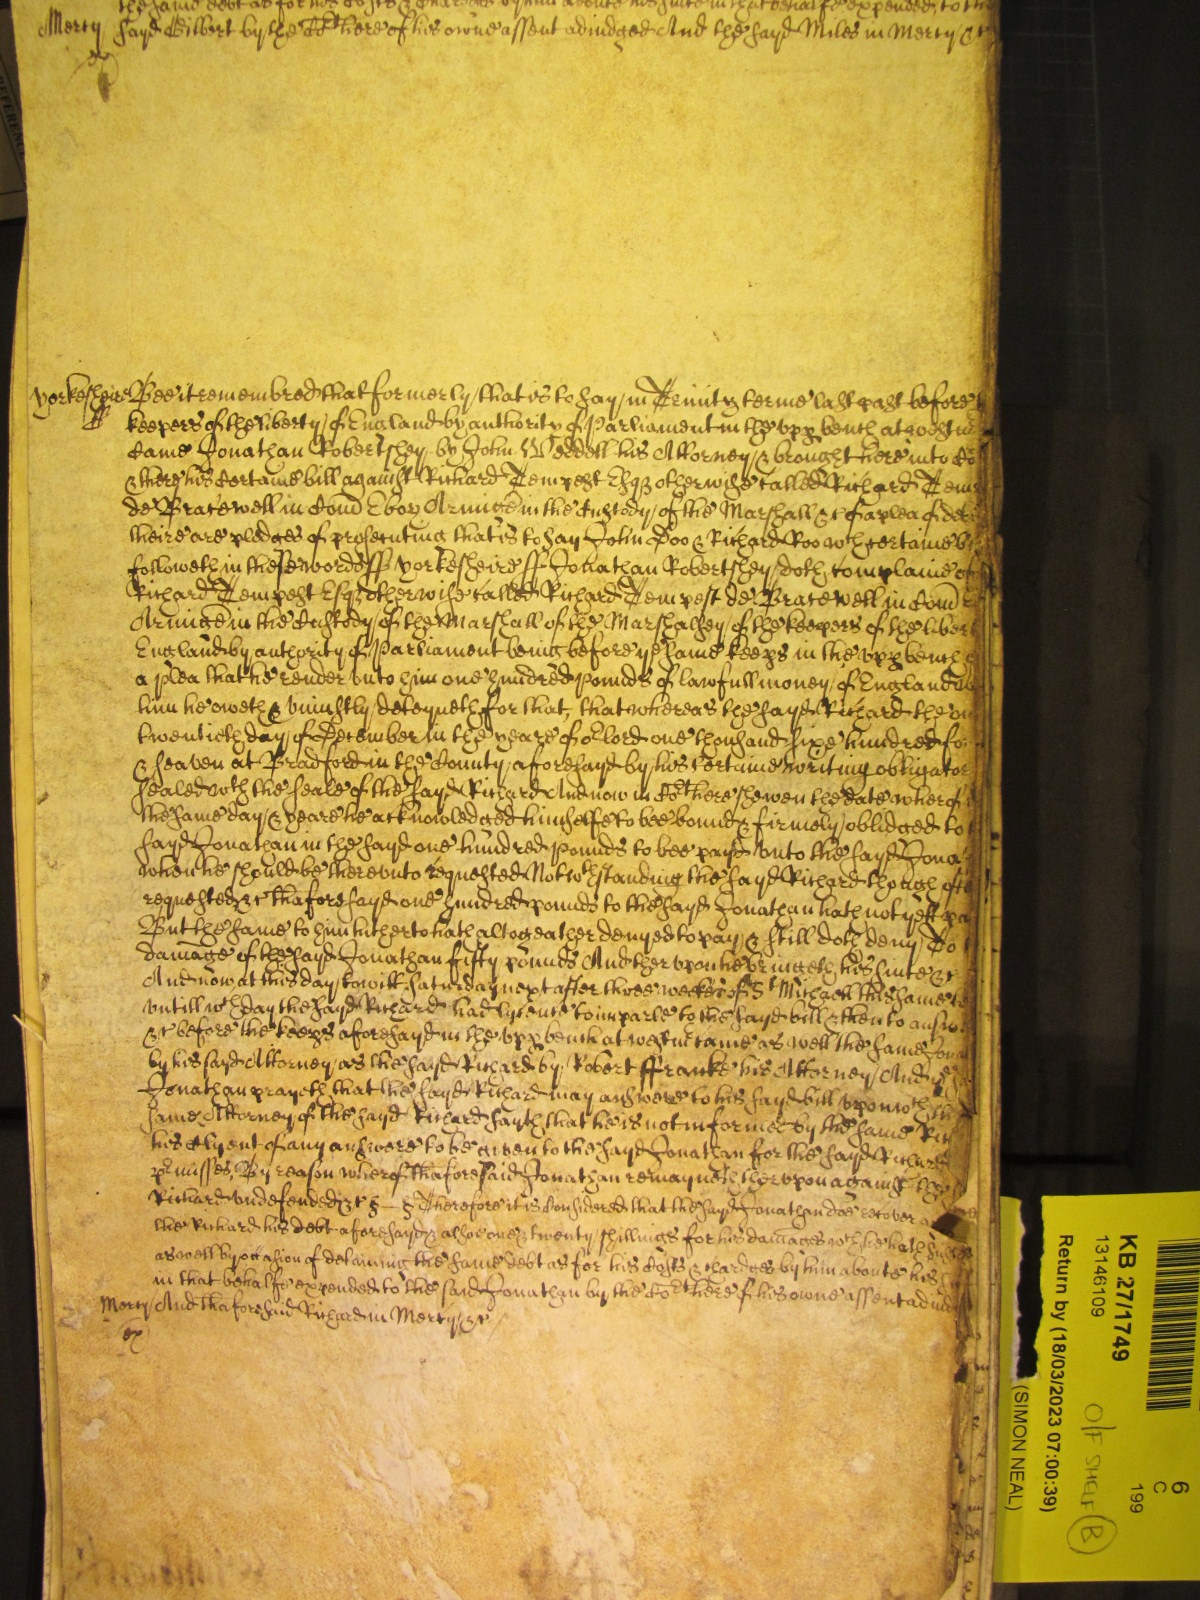 the same debt as for his Costs & Chardges by him aboute his suite in that behalfe expended, to th
Mercy sayd Gilbert by the Cort here of his owne assent adiudged And the sayd Miles in Mercy &c
Yorkesheire Bee it remembred that formerly, that is to say, in Trinity terme last past before
ss keepers of the liberty, of England by authority of Parliament in the vpp bench at Westm
Came Jonathan Robertshey, by John Weddell his Attorney, & brought here into Co
& there his Certaine bill against Richard Tempest Esq otherwise called Richard Tem
de Bracewell in Com Ebor Armige in the Custody, of the Marshall &c of a plea of deb
theire are pledges of prosecuting that is to say John Doo & Richard Roo wch certaine bi
followeth in these words ss Yorkesheire ss Jonathan Robertshey, doth complaine of
Richard Tempest Esq otherwise called Richard Tempest de Bracewell in Com
Armige in the Custody, of the Marshall of the Marshalsey, of the keepers of the libert
England by authority of Parliament being before ye same keeps in the vpp bench
a plea that he render vnto him one hundred pounds of lawfull money, of England
him he oweth & vniustly, deteyneth for that, that whereas the sayd Richard the
twentieth day, of December in the yeare of or lord one thousand sixe hundred fo
& seaven at Bradford in the County, aforesayd by, his certaine writing obligator
sealed wth the seale of the sayd Richard And now in Cort here shewen the date wherof
the same day, & yeare he acknowledged himselfe to bee bound & firmely, oblidged to
sayd Jonathan in the sayd one hundred pounds to bee payd vnto the sayd Jona
when he should be therevnto requested Notwthstanding the sayd Richard though ofte
requested &c thaforesayd one hundred pounds to the sayd Jonathan hath not yett pa
But the same to him hitherto hath altogeather denyed to pay, & still doth deny, To
damage of the sayd Jonathan fifty pounds And thervpon he bringeth his suite &c
And now at this day, to witt Saturday next after three weekes of St Michaell this same te
vntill wch day the sayd Richard had lycence to imparle to the sayd bill & then to answ
&c before the keeps aforesayd in the vpp bench at Westm came as well the same Jona
by his sayd Attorney, as the sayd Richard by, Robert ffranke his Attorney, And
Jonathan prayeth that the sayd Richard may answere to his sayd bill vpon wch the
same Attorney of the sayd Richard sayth that he is not informed by the same Rich
his Clyent of any answere to be given to the sayd Jonathan for the sayd Richard
pmisses, By reason wherof thaforesaid Jonathan remayneth thervpon against the
Richard vndefended &c Therefore it is Considered that the sayd Jonathan doe recover
the Richard his debt aforesayd & alsoe one & twenty shillings for his damages wch he hath
as well by occasion of detaining the same debt as for his Costs & chardges by him aboute his
in that behalfe expended to the said Jonathan by the Cort here of his owne assent adiud
Mercy And thaforesaid Richard in Mercy, &c
KB 27/1749
13146109
Return by (18/03/2023 07:00:39)
(SIMON NEAL)
O/F SHELF B
6
C
199